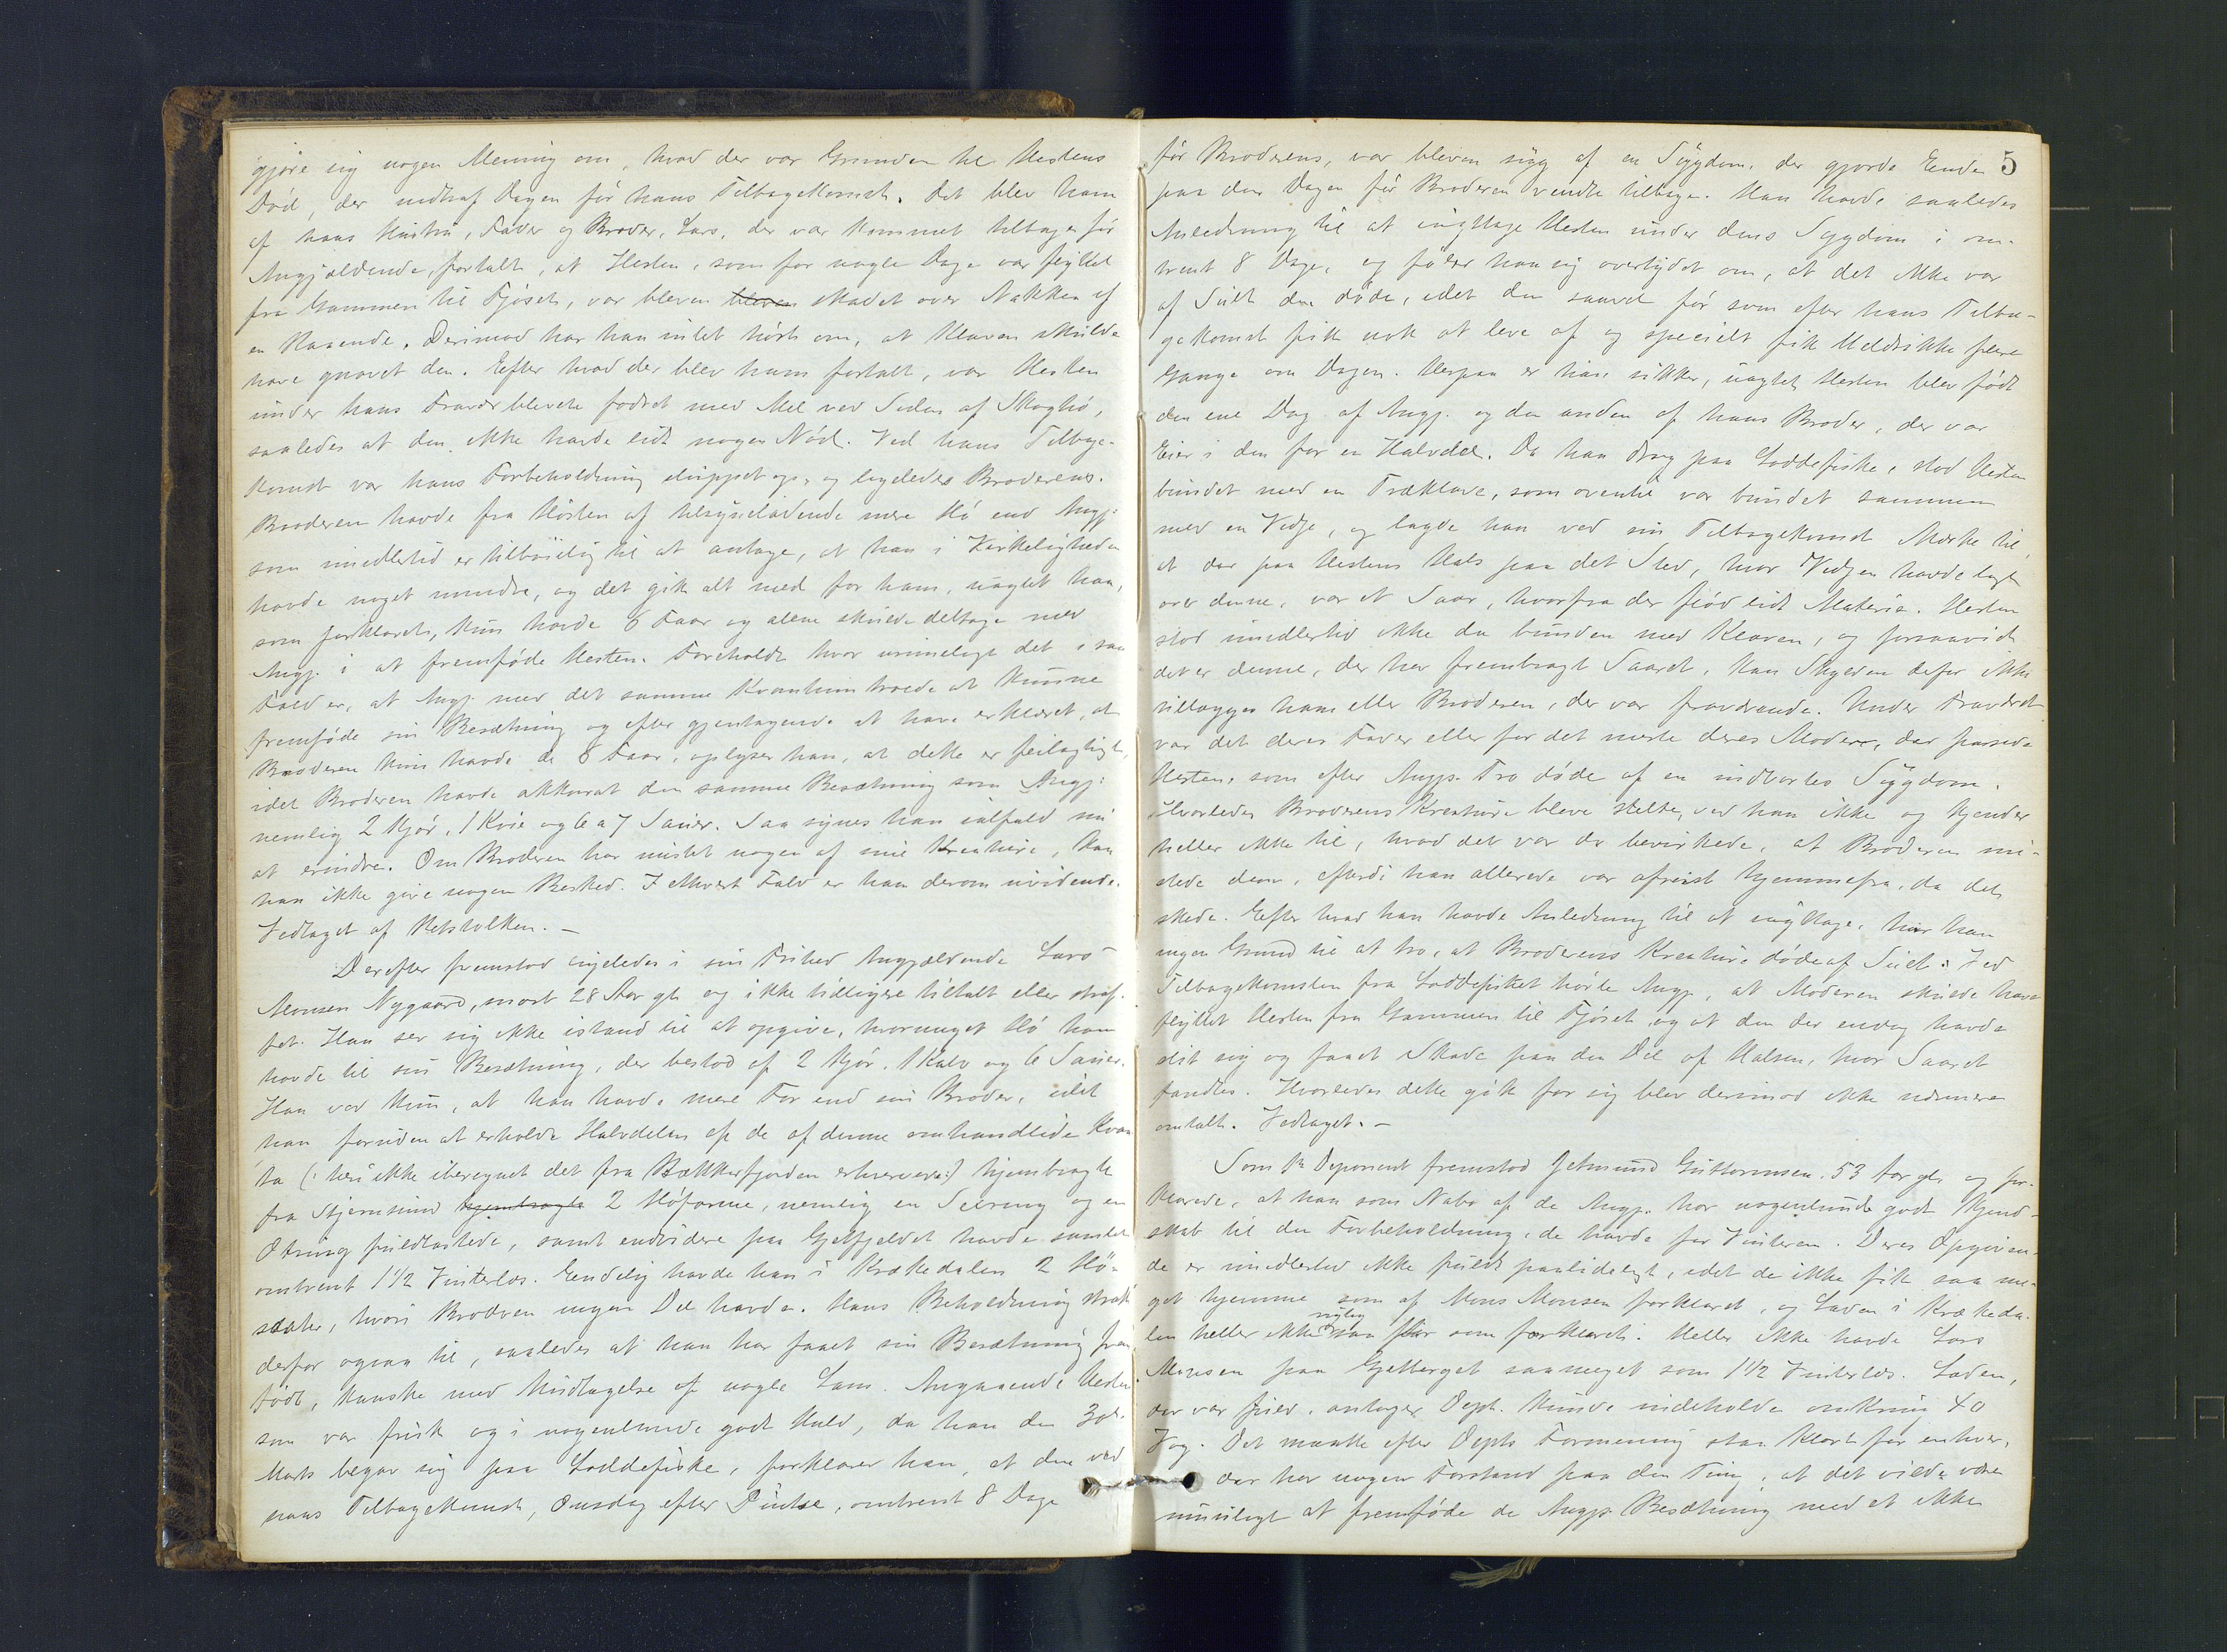 gjøre sig nogen Mening om, hvad der var Grunden til Hestens
Død, der indtraf Dagen før hans Tilbagekomst. Det blev ham
af hans Hustru, Fader og Broder, Lars, der var kommet tilbage før
Angjældende, fortalt, at Hesten, som for nogle Dage var flyttet
fra Gammen til Fjøset, var bleven bleven skadet over Nakken af
en Ko. Derimod har han intet hørt om, at Klaven skulde
have gnavet den. Efter hvad der blev ham fortalt, var Hesten
under hans Fravær blevet fodret med Mel ved Siden af Skoghø,
saaledes at den ikke havde lidt nogen Nød. Ved hans Tilbage-
komst var hans Forbeholdning sluppet op, og ligeledes Broderens.
Broderen havde fra Høsten af tilsyneladende mere Hø end Angj.
som imidlertid er tilbøielig til at antage, at han i Virkeligheden
havde noget mindre, og det gik alt med for ham, uagtet han,
som forklaret, kun havde 6 Faar og alene skulde deltage med
Angj. i at fremføde Hesten. Foreholdt hvor urimeligt det i saa
Fald er, at Angj. med det samme Kvantum troede at kunne
fremføde sin Besætning og efter gjentagende at have erklæret, at
Broderen kun havde de 6 Faar, oplyser han, at dette er feilagtigt,
idet Broderen havde akkurat den samme Besætning som Angj:
nemlig 2 Kjør, 1 Kvie og 6 a 7 Sauer. Saa synes han ialfald nu
at erindre. Om Broderen har mistet nogen af sine Kreature, kan
han ikke give nogen Besked. I ethvert Fald er han derom uvidende.
Vedtaget af Retstolken. —
Derefter fremstod ligeledes i sin Frihed Angjældende Lars
Monsen Nygaard, snart 28 Aar gl. og ikke tidligere tiltalt eller straf-
fet. Han ser sig ikke istand til at opgive, hvormeget Hø han
havde til sin Besætning, der bestod af 2 Kjør, 1 Kalv og 6 Sauer.
Han ved kun, at han havde mere For end sin Broder, idet
han foruden at erholde Halvdelen af de af denne omhandlede Kvan
ta (: heri ikke iberegnet det fra Bækkerfjorden erhvervede:) hjembragte
fra Stjernsund hjembragte 2 Høformer, nemlig en Sexring og en
Otring fuldlastede, samt endvidere paa Gjetfjeldet havde samlet
omtrent 1 1/2 Vinterlæs. Endelig havde han i Krækedalen 2 Hø-
stakke, hvori Broderen ingen Del havde. Hans Beholdning strak
derfor ogsaa til, saaledes at han har faaet sin Besætning frem
født, kanske med Undtagelse af nogle Lam. Angaaende Hesten
som var frisk og i nogenlunde godt Huld, da han den 30te
Marts begav sig paa Loddefiske, forklarer han, at den ved
hans Tilbagekomst, Onsdag efter Pintse, omtrent 8 Dage
5
før Broderens, var bleven syg af en Sygdom, der gjorde Ende
paa den Dagen før Broderen vendte tilbage. Han havde saaledes
Anledning til at iagttage Hesten under dens Sygdom i om-
trent 8 Dage, og føler han sig overtydet om, at det ikke var
af Sult den døde, idet den saavel før som efter hans Tilba-
gekomst fik nok at leve af og specielt fik Meldrikke flere
Gange om Dagen. Herpaa er han sikker, uagtet Hesten blev født
den ene Dag af Angj. og den anden af hans Broder, der var
Eier i den for en Halvdel. Da han drog paa Loddefiske, stod Hesten
bundet med en Træklave, som oventil var bundet sammen
med en Vidje, og lagde han ved sin Tilbagekomst Mærke til,
at der paa Hestens Hals paa det Sted, hvor Vidjen havde ligt
over denne, var et Saar, hvorfra der flød lidt Materie. Hesten
stod imidlertid ikke da bunden med Klaven, og forsaavidt
det er denne, der har frembragt Saaret, kan Skylden derfor ikke
tillægges ham eller Broderen, der var fraværende. Under Fraværet
var det deres Fader eller for det meste deres Moder, der passede
Hesten, som efter Angj.s Tro døde af en indvortes Sygdom.
Hvorledes Broderens Kreature bleve stelte, ved han ikke og kjender
heller ikke til, hvad det var der bevirkede, at Broderen mi-
stede dem, efterdi han allerede var afreist hjemmefra, da det
skede. Efter hvad han havde Anledning til at iagttage, har han
ingen Grund til at tro, at Broderens Kreature døde af Sult: Ved
Tilbagekomsten fra Loddefisket hørte Angj., at Moderen skulde have
flyttet Hesten fra Gammen til Fjøset, og at den der endog havde
slit sig og faaet Skade paa den Del af Halsen, hvor Saaret
fandtes. Hvorledes dette gik for sig blev derimod ikke nærmere
omtalt. Vedtaget. —
Som 1ste Deponent fremstod Jetmund Guttormsen, 53 Aar gl. og for-
klarede, at han som Nabo af de Angj. har nogenlunde godt Kjend-
skab til den Forbeholdning, de havde for Vinteren. Deres Opgiven-
de er imidlertid ikke fuldt paalideligt, idet de ikke fik saa me-
get hjemme som af Mons Monsen forklaret, og Laden i Krækeda-
len heller ikke rigtig saa stor som forklaret. Heller ikke havde Lars
Monsen paa Gjetberget saameget som 1 1/2 Vinterlæs. Laden,
der var fuld, antager Dept. kunde indeholde omkring 40
Vog. Det maatte efter Depts Formening staa klart for enhver,
der har nogen Forstand paa den Ting, at det vilde være
umuligt at fremføde de Angj.s Besætning med et ikke